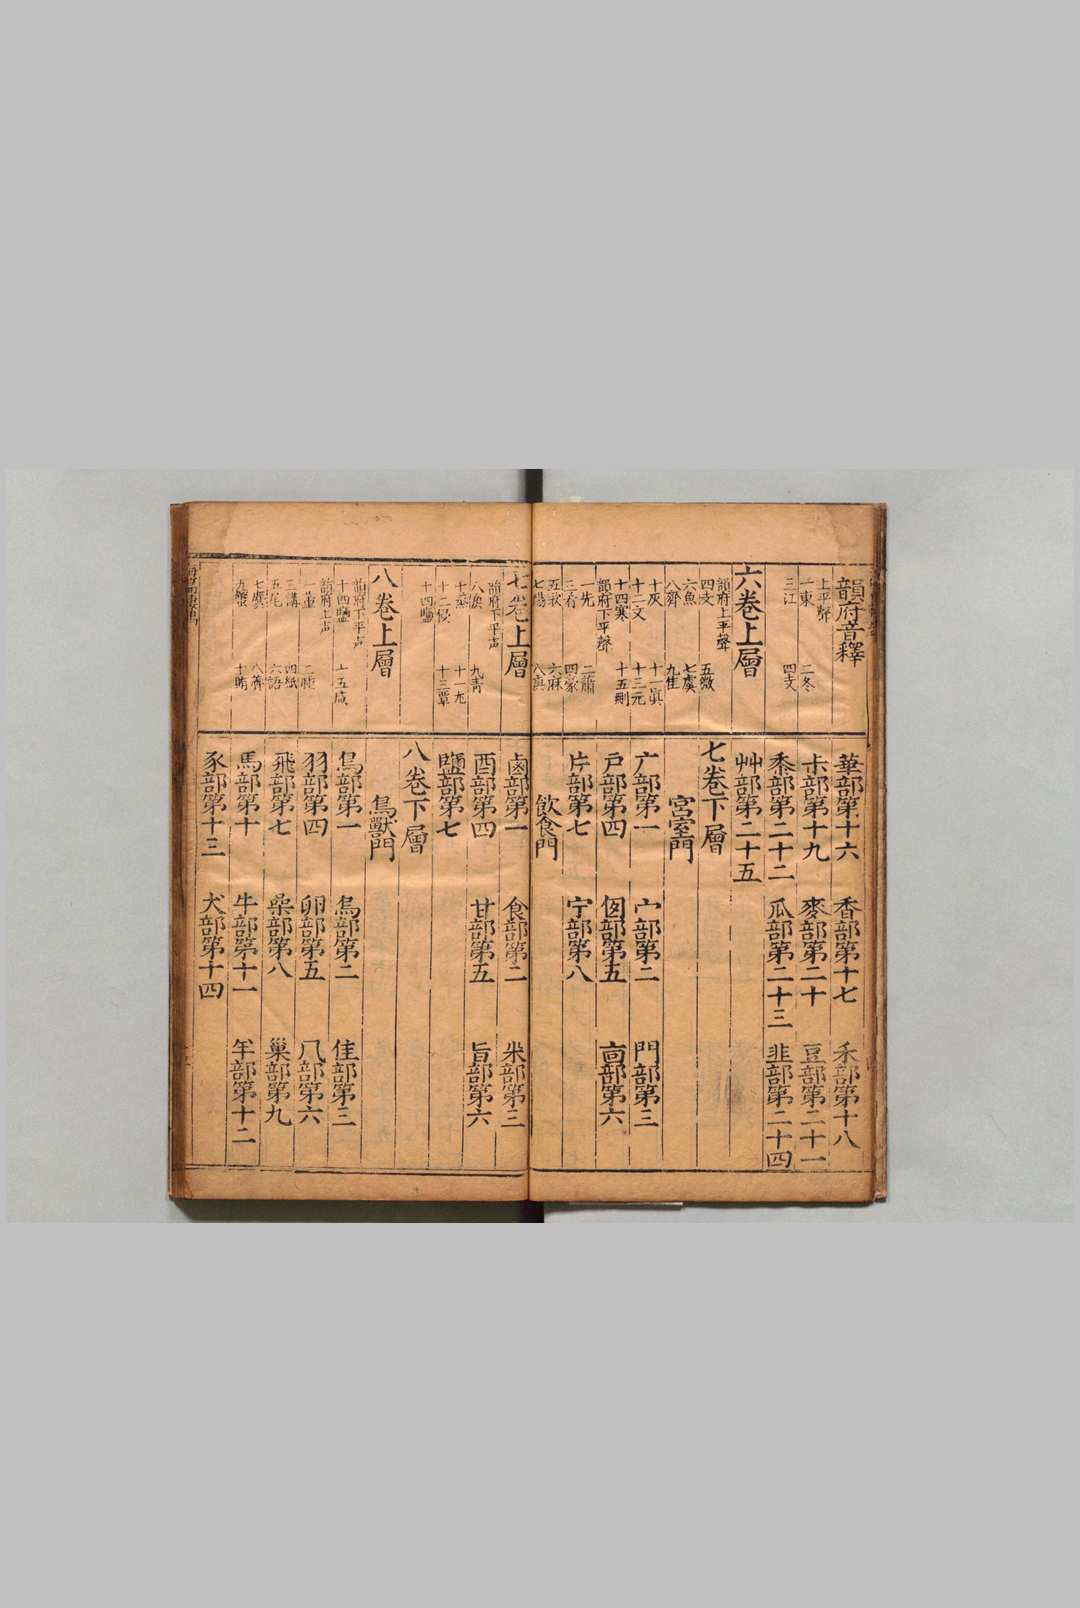 韻府音釋
上平聲
一東 二冬
三江 四支
六卷上層
韻府上平聲
四支 五微
六魚 七虞
八齊 九佳
十灰 十一真
十二文 十三元
十四寒 十五刪
韻府下平聲
一先 二蕭
三肴 四豪
五歌 六麻
七陽
華部第十六 香部第十七 禾部第十八
部第十九 麥部第二十 豆部第二十一
黍部第二十二 瓜部第二十三 韭部第二十四
艸部第二十五
七卷下層
宮室門
广部第一 宀部第二 門部第三
戶部第四 囪部第五 㐭部第六
片部第七 宁部第八
飲食門
七卷上層
韻府下平声
八庚 九青
十蒸 十一尤
十二侵 十三覃
十四鹽
八卷上層
韻府下平声
十四鹽 十五咸
韻府上声
一董 二腫
三講 四紙
五尾 六語
七麌 八薺
九蟹 十賄
鹵部第一 食部第二 米部第三
酉部第四 甘部第五 旨部第六
鹽部第七
八卷下層
鳥獸門
鳥部第一 烏部第二 隹部第三
羽部第四 卵部第五 几部第六
飛部第七 喿部第八 巢部第九
馬部第十 牛部第十一 羊部第十二
豕部第十三 犬部第十四